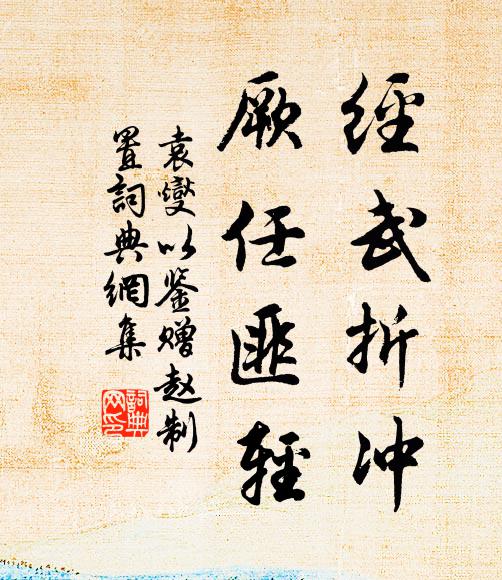 經武折冲
厥任匪輕
袁燮以鉴赠赵制
置詞典網集
詞典
网印